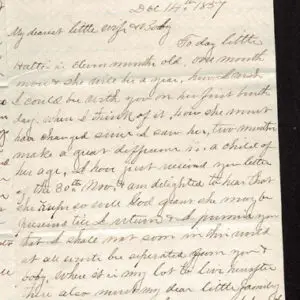 Dec 14th 1857
My dearest little wife & Baby
To day little
Hattie is eleven months old, one month
more & she will be a year, how I wish
I could be with you on her first birth
day. When I think of it, how she must
have changed since I saw her, two months
make a great difference in a child of
her age, I have just received your letter
of the 30th Nov. & am delighted to hear that
she keeps so well God grant she may be
till I return & I promise you
that I shall not soon in this world
at all events be seperated from you &
baby. Where it is my lot to live hereafter
there also must my dear little family